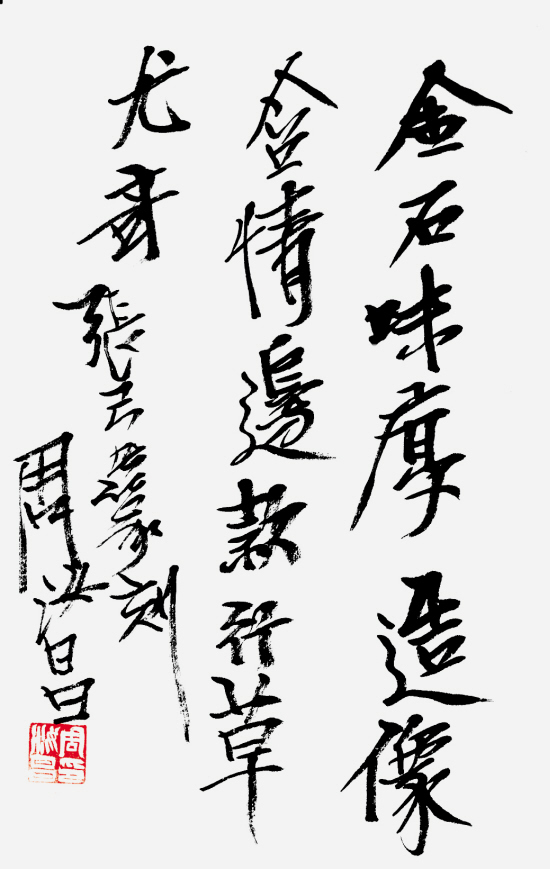 金石味厚造像
含情邊款行草
尤奇張篆刻
周汝昌
周印
汝昌